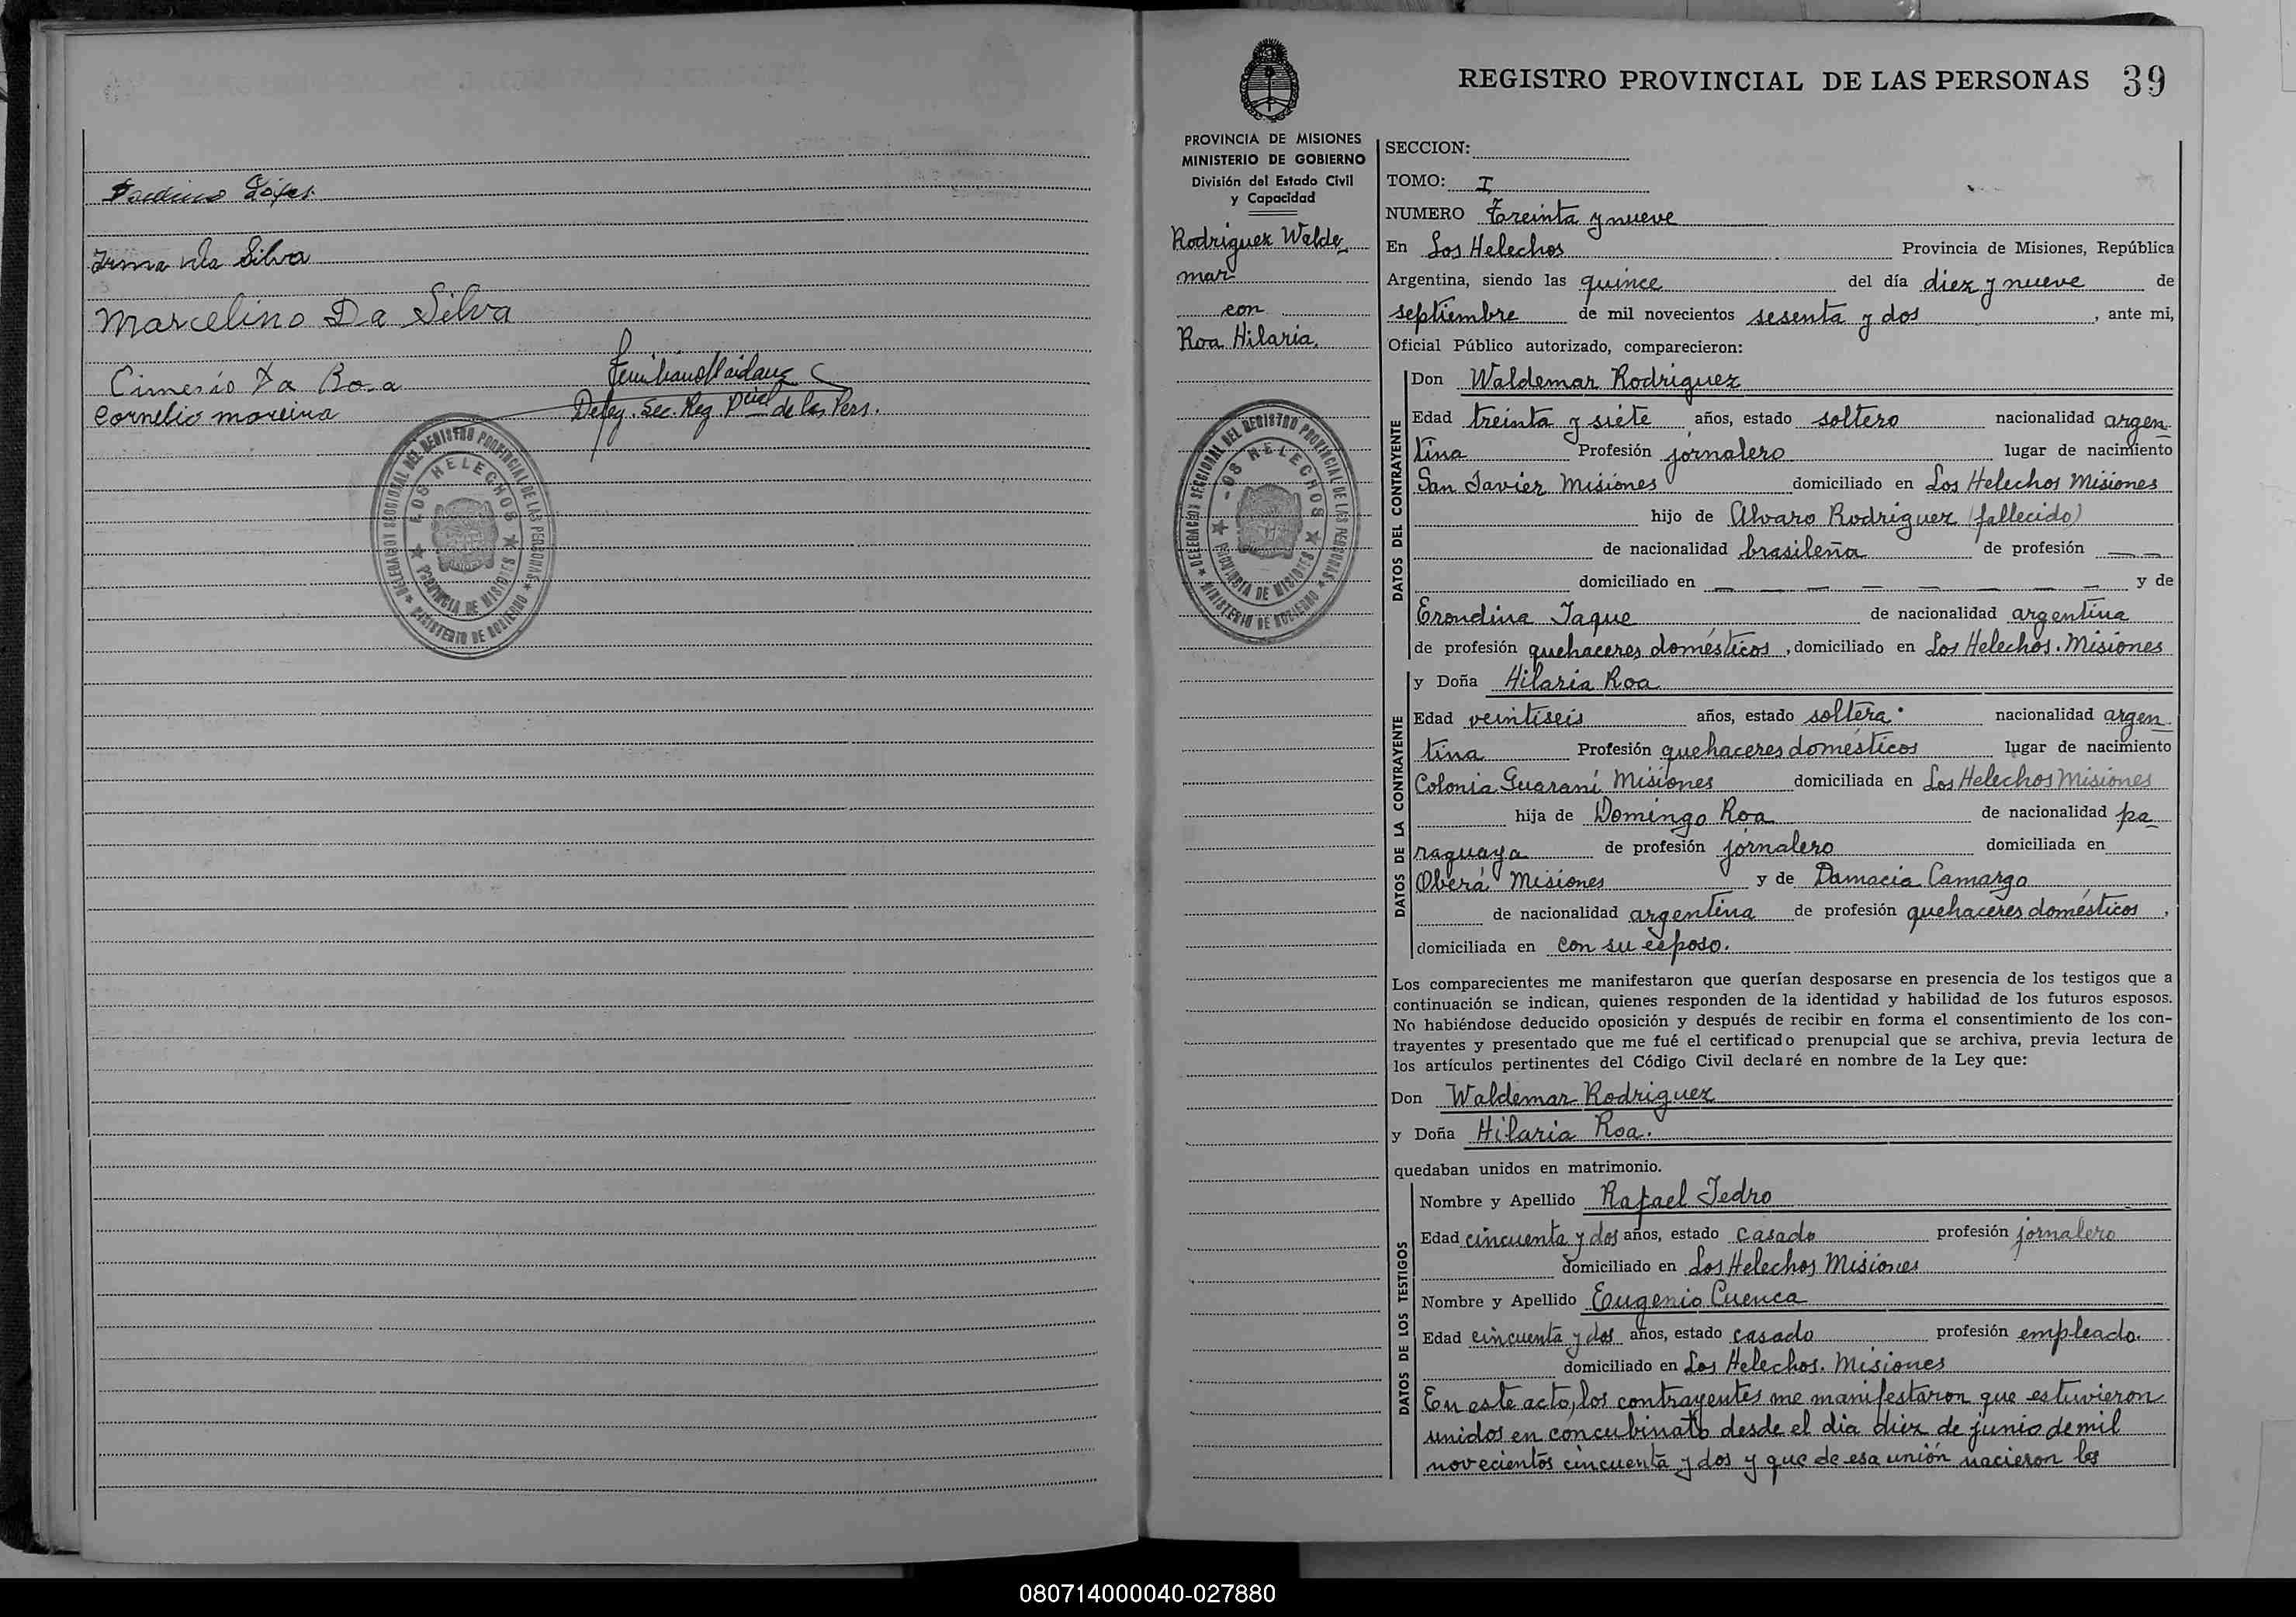 Irma da Silva
Marcelino Da Silva
Cimerio Da Rosa
Cornelio moreira
Deleg. Sec. Reg. Pcial de las Pers.
DELEGACION SECCIONAL DEL REGISTRO PROVINCIAL DE LAS PERSONAS
LOS HELECHOS
PROVINCIA DE MISIONES
MINISTERIO DE GOBIERNO
REGISTRO PROVINCIAL DE LAS PERSONAS 39
PROVINCIA DE MISIONES
MINISTERIO DE GOBIERNO
División del Estado Civil
y Capacidad
Rodriguez Walde
mar
con
Roa Hilaria.
DELEGACION SECCIONAL DEL REGISTRO PROVINCIAL DE LAS PERSONAS
LOS HELECHOS
PROVINCIA DE MISIONES
MINISTERIO DE GOBIERNO
SECCION:
TOMO: I
NUMERO Treinta y nueve
En Los Helechos Provincia de Misiones, República
Argentina, siendo las quince del día diez y nueve de
septiembre de mil novecientos sesenta y dos, ante mi,
Oficial Público autorizado, comparecieron:
DATOS DEL CONTRAYENTE
Don Waldemar Rodriguez
Edad treinta y siete años, estado soltero nacionalidad argen
tina Profesión jornalero lugar de nacimiento
San Javier Misiones domiciliado en Los Helechos Misiones
hijo de Alvaro Rodriguez (fallecido)
de nacionalidad brasileña de profesión — —
domiciliado en — — — — — — — y de
Erondina Taque de nacionalidad argentina
de profesión quehaceres domésticos, domiciliado en Los Helechos. Misiones
DATOS DE LA CONTRAYENTE
y Doña Hilaria Roa
Edad veintiseis años, estado soltera nacionalidad argen
tina Profesión quehaceres domésticos lugar de nacimiento
Colonia Guaraní Misiones domiciliada en Los Helechos Misiones
hija de Domingo Roa de nacionalidad pa
raguaya de profesión jornalero domiciliada en
Oberá Misiones y de Damacia Camargo
de nacionalidad argentina de profesión quehaceres domésticos,
domiciliada en con su esposo.
Los comparecientes me manifestaron que querían desposarse en presencia de los testigos que a
continuación se indican, quienes responden de la identidad y habilidad de los futuros esposos.
No habiéndose deducido oposición y después de recibir en forma el consentimiento de los con-
trayentes y presentado que me fué el certificado prenupcial que se archiva, previa lectura de
los artículos pertinentes del Código Civil declaré en nombre de la Ley que:
Don Waldemar Rodriguez
y Doña Hilaria Roa.
quedaban unidos en matrimonio.
DATOS DE LOS TESTIGOS
Nombre y Apellido Rafael Tedro
Edad cincuenta y dos años, estado casado profesión jornalero
domiciliado en Los Helechos Misiones
Nombre y Apellido Eugenio Cuenca
Edad cincuenta y dos años, estado casado profesión empleado.
domiciliado en Los Helechos. Misiones
En este acto, los contrayentes me manifestaron que estuvieron
unidos en concubinato desde el dia diez de junio de mil
novecientos cincuenta y dos y que de esa unión nacieron los
080714000040-027880